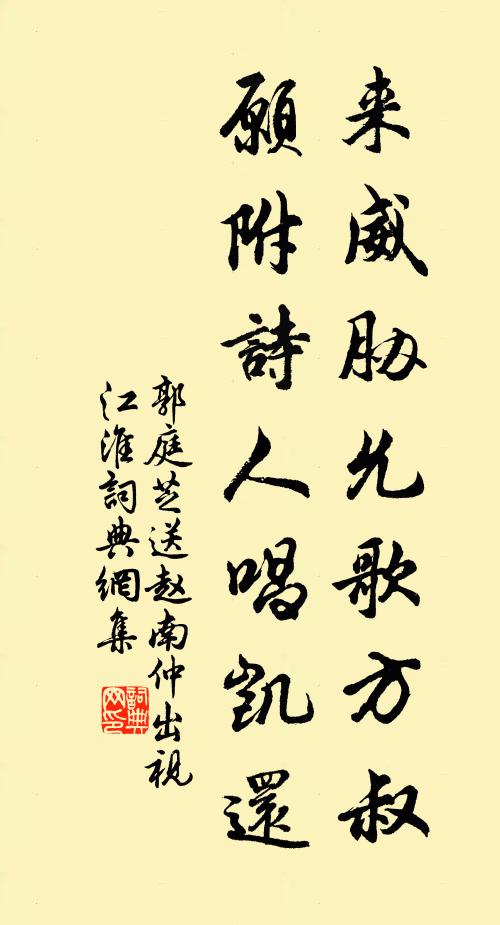 来威胁允歌方叔
願附詩人唱凱還
郭庭芝送赵南仲出視
江淮詞典網集
詞典
网印